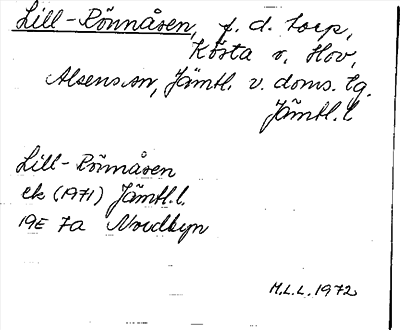 Lill-Rönnåsen, f. d. torp,
Kösta o. Hov,
Alsens sn, Jämtl. v. doms. tg.
Jämtl. l
Lill-Rönnåsen
ek (1971) Jämtl. l.
19E 7a Nordbyn
M.L.L. 1972